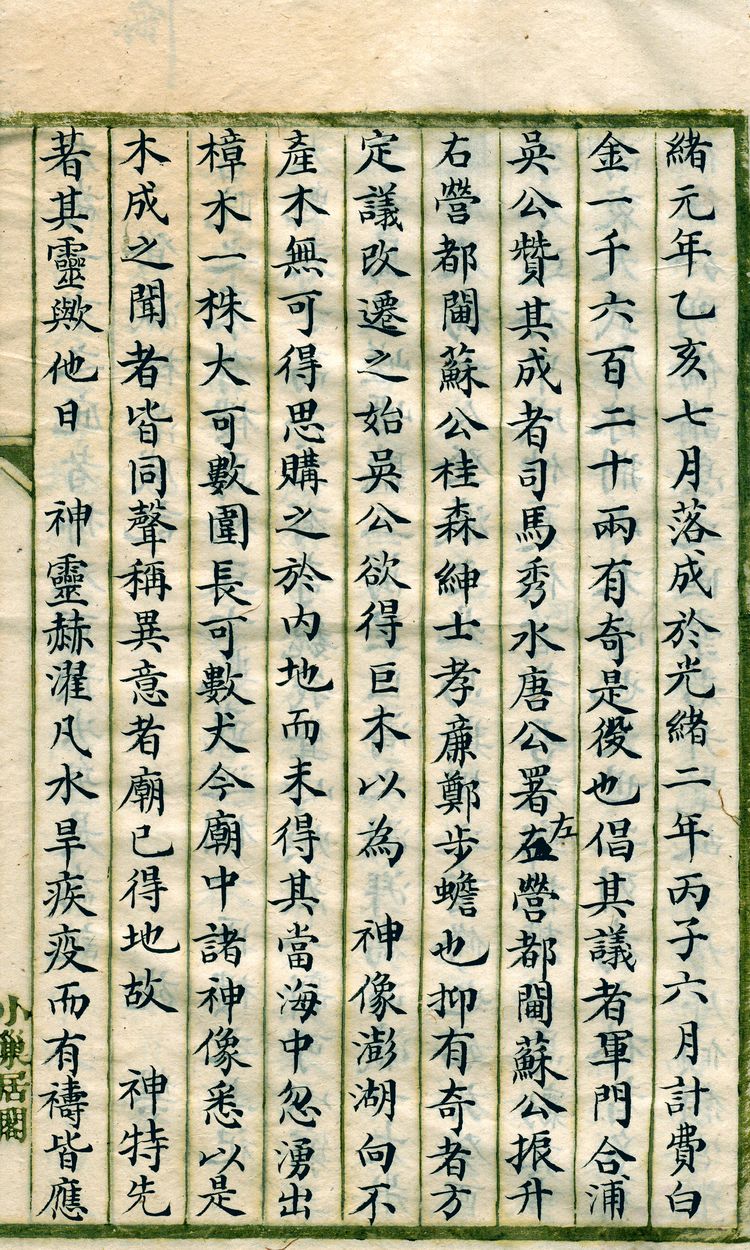 緒元年乙亥七月落成於光緒二年丙子六月計費白
金一千六百二十兩有奇是役也倡其議者軍門合浦
吳公贊其成者司馬秀水唐公署左營都閫蘇公振升
右營都閫蘇公桂森紳士孝亷鄭步蟾也抑有奇者方
定議改遷之始吳公欲得巨木以為 神像澎湖向不
產木無可得思購之於內地而未得其當海中忽湧出
樟木一株大可數圍長可數丈今廟中諸神像悉以是
木成之聞者皆同聲稱異意者廟已得地故 神特先
著其靈歟他日 神靈赫濯凡水旱疾疫而有禱皆應
小巢居閣